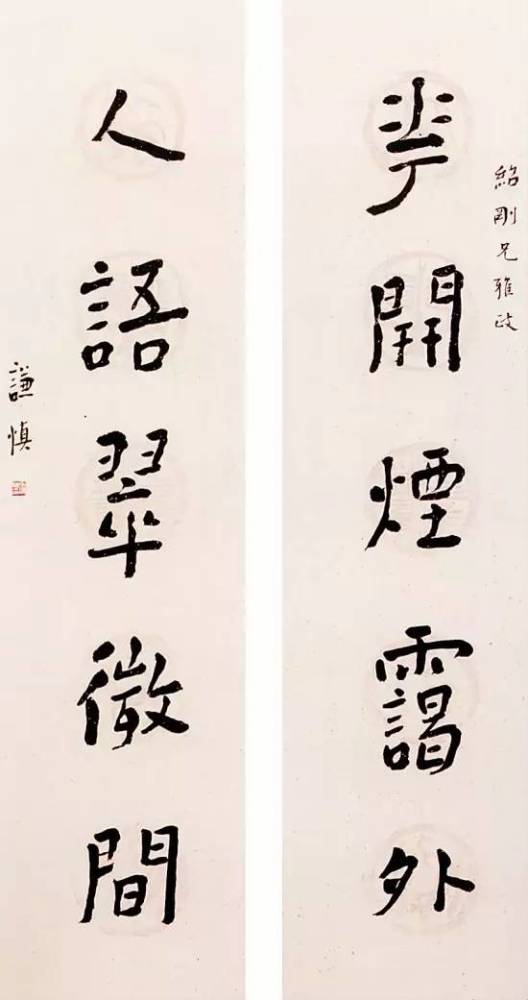 紹剛兄雅政
華開煙靄外
人語翠微間
謙慎